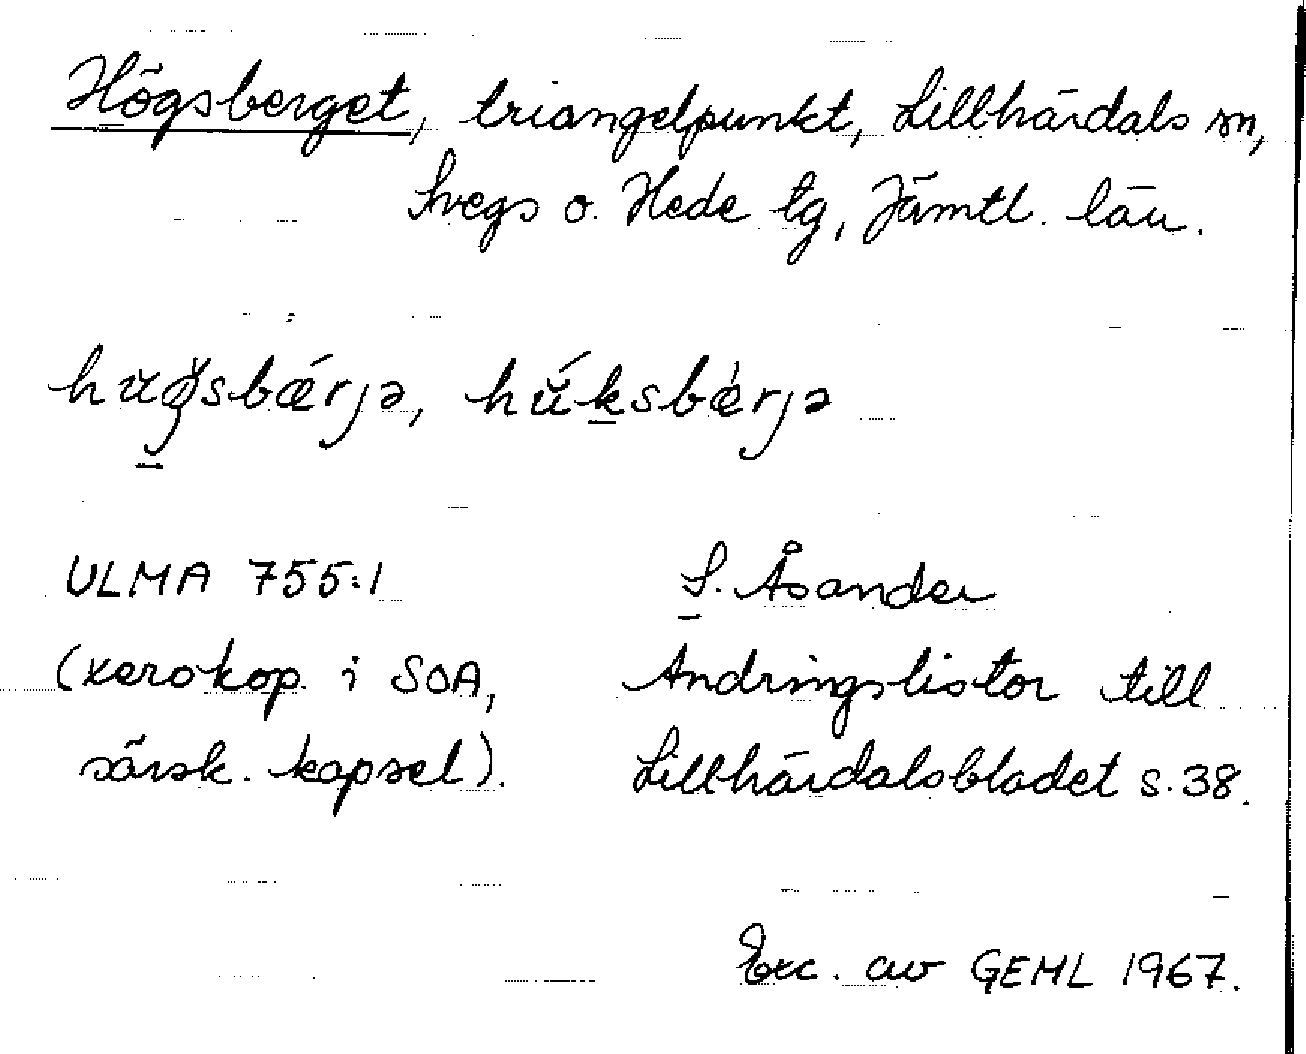 Högsberget, triangelpunkt, Lillhärdals sn,
Svegs o. Hede tg, Jämtl. län.
húksbǽrjə
ULMA 755:1
(xerokop. i SOA,
särsk. kapsel).
S. Åsander
Ändringslistor till
Lillhärdalsbladet s. 38.
Exc. av GEML 1967.